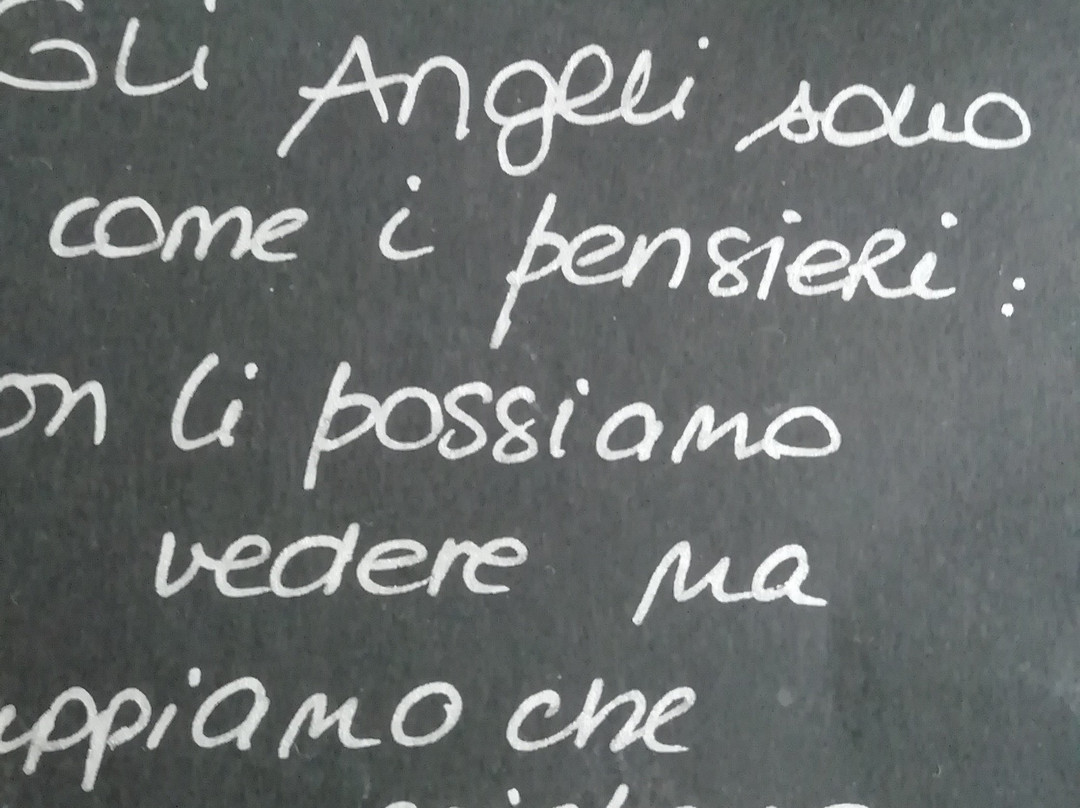 Gli Angeli sono
come i pensieri:
on li possiamo
vedere ma
appiamo che